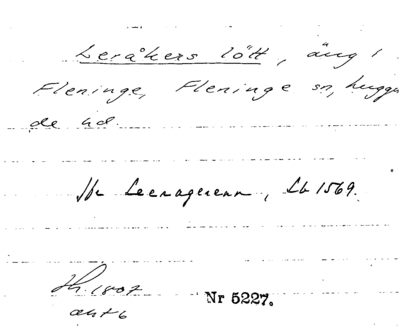 Leråkers lött, äng i
Fleninge, Fleninge sn, Luggu
de hd.
Jfr Leeragerenn, Lb 1569.
Hh. 1807
akt 6
Nr 5227.